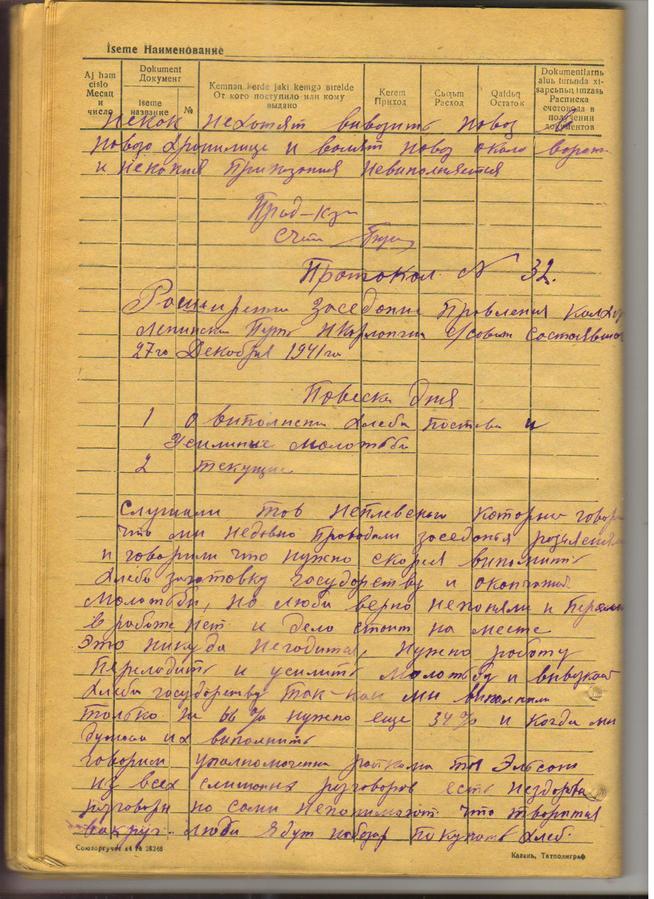 Iseme Наименование
Aj ham cislo Месяц и число
Dokument Документ
Iseme название
№
Kemnən kerde jaki kemgə birelde От кого поступило или кому выдано
Kerem Приход
Сьqьт Расход
Qaldьq Остаток
Dokumentlarnь aluь turьnda xisapcьnьꞑ imzasь Расписка счетовода в получении документов
некак нехотят вивозить новоз в
новозо хронилище и волят новоз около ворот
и некокия Приказания невиполняется
Пред-к
Счет
Протокол N 32.
Росширенно заседания Провления колхоз
Ленински Путь с/совет состоявше
27го Декобря 1941го
Повеска дня
1 о виполнени хлеба постова и
Усиления молотьби
2 текущие
Слушали тов которие говор
что ми недовно Проводили заседонья
и говорили что нужно скорея виполнить
хлебо заготовку государству и окончания
молотьби, но люди верно непоняли и
в работе нет и дело стоит на месте
это никуда негодится, нужно работу
Перелодить и усилить молотьбу и вивузкой
хлеба государству так-как ми виполнили
только на 66% нужно еще 34% и когда ми
думаем их виполнить
говорит уполномочени райкома тов Эльсон
из всех слишания разговоров есть нездорови
разговори но сами непонимают что творится
вокруг. люди ядут на базар покупать хлеб.
Союзоргучет х4 № 28268
Казань, Татполиграф